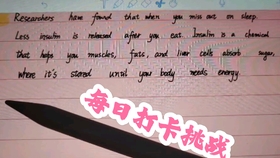 Researchers have found that when you miss out on sleep.
Less insulin is released after you eat. Insulin is a chemical
that helps you muscles, fats, and liver cells absorb sugar,
where it's stored until you body needs energy.
每日打卡挑战